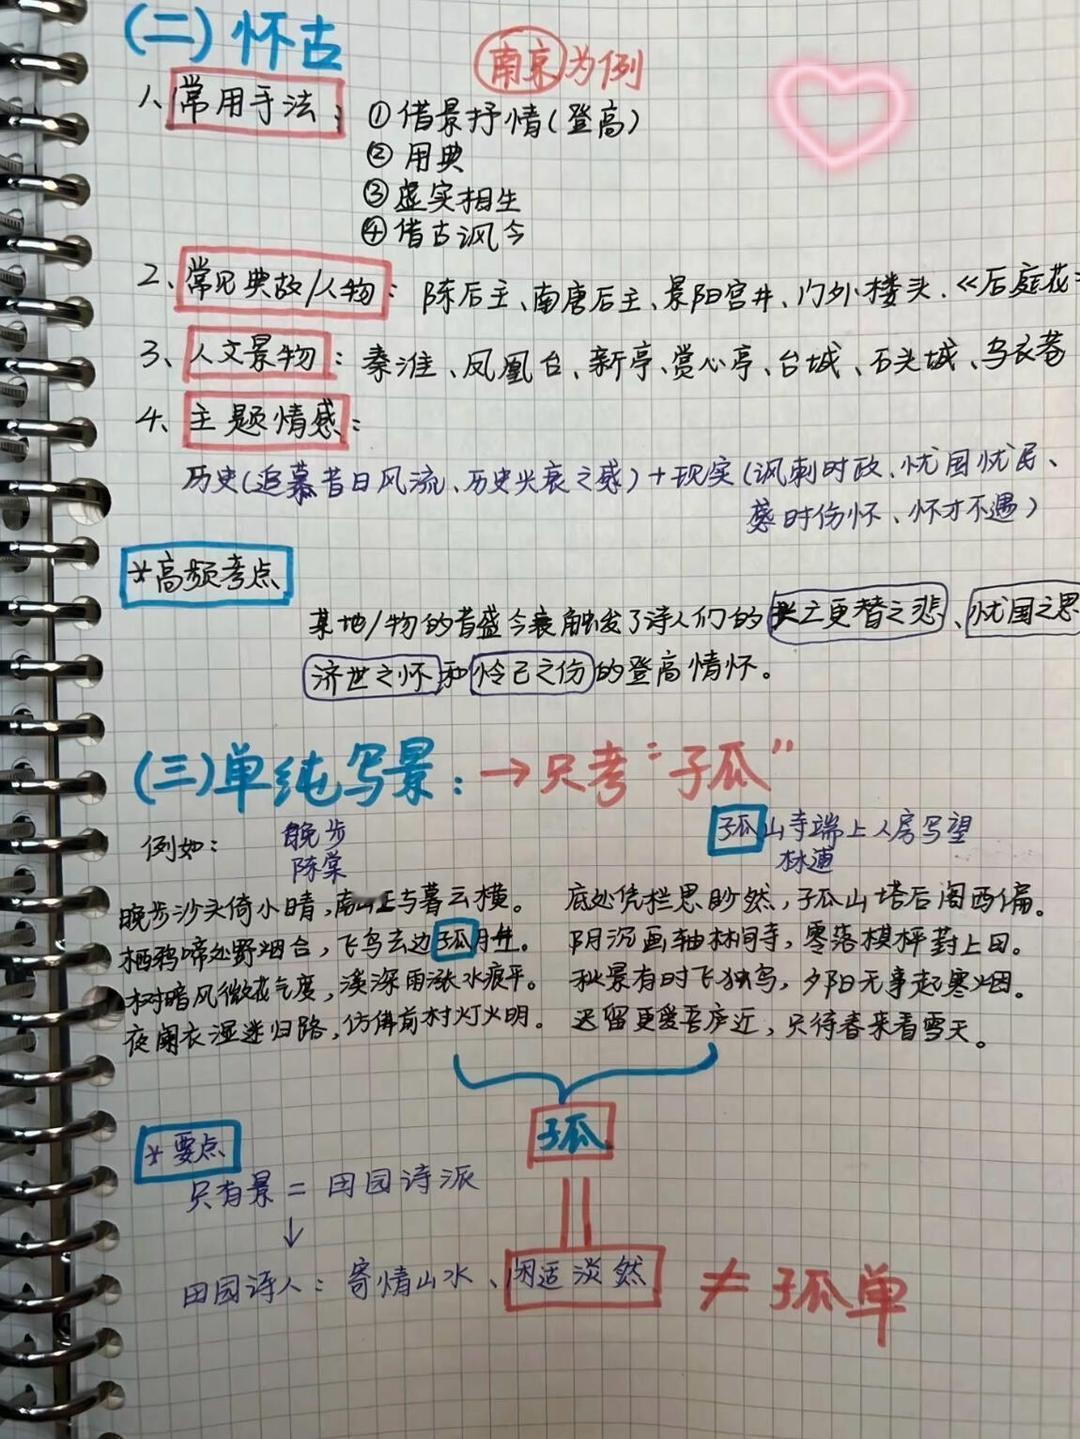 (二)怀古
南京为例
1、常用手法：①借景抒情(登高)
②用典
③虚实相生
④借古讽今
2、常见典故/人物：陈后主、南唐后主、景阳宫井、门外楼头、《后庭花
3、人文景物：秦淮、凤凰台、新亭、赏心亭、台城、石头城、乌衣巷
4、主题情感：
历史(追慕昔日风流、历史兴衰之感)+现实(讽刺时政、忧国忧民、
感时伤怀、怀才不遇)
*高频考点
某地/物的昔盛今衰触发了诗人们的兴亡更替之悲、忧国之思
济世之怀和怜己之伤的登高情怀。
(三)单纯写景：→只考"孤"
例如：
晚步
陈棠
晚步沙头倚小晴，南山正与暮云横。
栖鸦啼处野烟合，飞鸟去边孤月生。
树暗风微花气度，溪深雨涨水痕平。
夜阑衣湿迷归路，仿佛前村灯火明。
孤山寺端上人房写望
林逋
底处凭栏思眇然，孤山塔后阁西偏。
阴沉画轴林间寺，零落棋枰葑上田。
秋景有时飞独鸟，夕阳无事起寒烟。
迟留更爱吾庐近，只待春来看雪天。
孤
*要点
只有景=田园诗派
↓
田园诗人：寄情山水、闲适淡然 ≠孤单